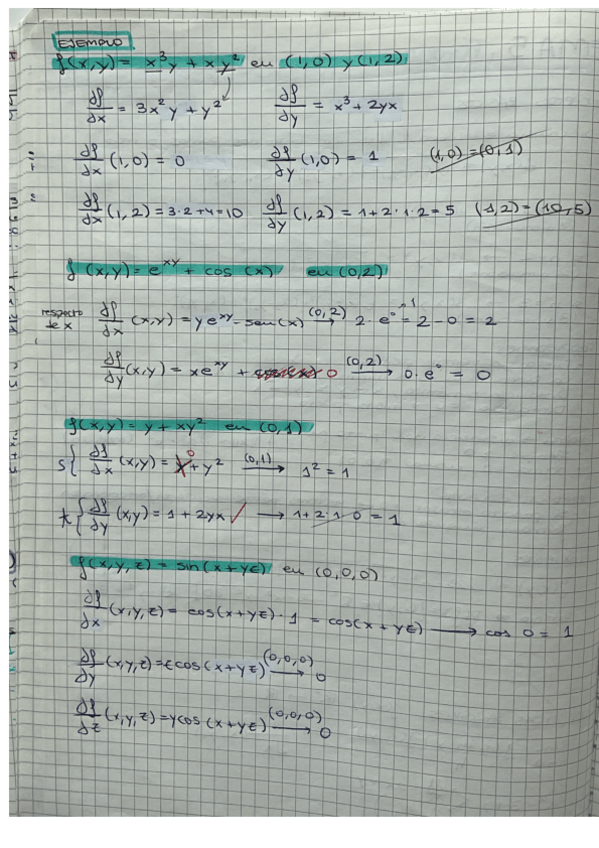 EJEMPLO
f(x,y) = x³y + xy² en (1,0) y (1,2)
∂f/∂x = 3x²y + y² ∂f/∂y = x³ + 2yx
∂f/∂x (1,0) = 0 ∂f/∂y (1,0) = 1 (1,0) = (0,1)
∂f/∂x (1,2) = 3·2+4=10 ∂f/∂y (1,2) = 1+2·1·2=5 (1,2) = (10,5)
f(x,y) = e^xy + cos(x) en (0,2)
respecto de x ∂f/∂x (x,y) = y e^xy - sen(x) (0,2) → 2·e⁰ 1 = 2-0 = 2
∂f/∂y (x,y) = xe^xy + 0 (0,2) → 0·e⁰ = 0
f(x,y) = y + xy² en (0,1)
s{ ∂f/∂x (x,y) = y 0 + y² (0,1) → 1² = 1
t{ ∂f/∂y (x,y) = 1 + 2yx ✓ → 1+2·1·0 = 1
f(x,y,z) = sin(x+yz) en (0,0,0)
∂f/∂x (x,y,z) = cos(x+yz)·1 = cos(x+yz) → cos 0 = 1
∂f/∂y (x,y,z) = z cos(x+yz) (0,0,0) → 0
∂f/∂z (x,y,z) = y cos(x+yz) (0,0,0) → 0